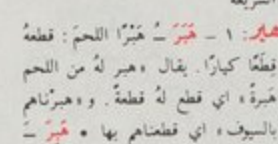 هبر: ١ - هَبَرَ ـُ هَبْرًا اللحمَ: قطعهُ
قِطَعًا كبارًا. يقال «هبر لهُ من اللحم
هَبرةً» اي قطع لهُ قطعةً. و«هبرناهم
بالسيوف» اي قطعناهم بها • هَبِرَ ـَ